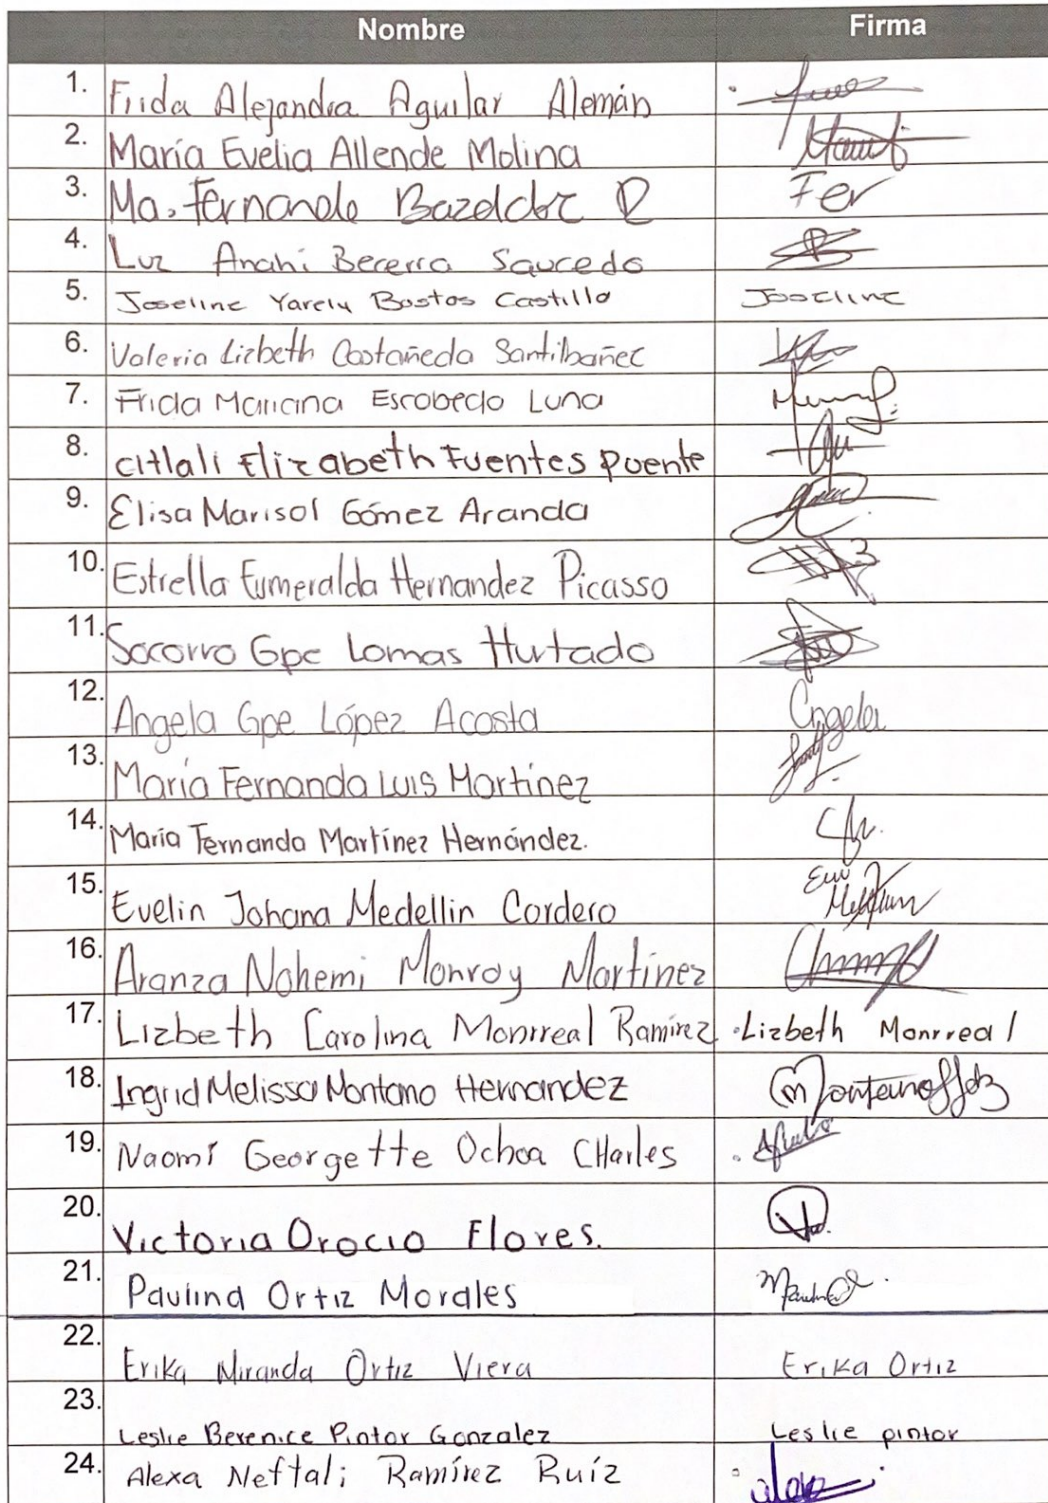 Nombre Firma
1. Frida Alejandra Aguilar Alemán
2. María Evelia Allende Molina
3. Ma. Fernanda R Fer
4. Luz Anahi Becerra Saucedo
5. Joseline Yarely Bustos Castillo Joseline
6. Valeria Lizbeth Castañeda Santilbañez
7. Frida Mariana Escobedo Luna
8. citlali Elizabeth Fuentes puente
9. Elisa Marisol Gómez Aranda
10. Estrella Esmeralda Hernandez Picasso
11. Socorro Gpe Lomas Hurtado
12. Angela Gpe López Acosta Angela
13. María Fernanda Luis Martínez
14. María Fernanda Martínez Hernández.
15. Evelin Johana Medellin Cordero
16. Aranza Nohemi Monroy Martínez
17. Lizbeth Carolina Monrreal Ramírez Lizbeth Monrreal
18. Ingrid Melissa Montano Hernandez
19. Naomí Georgette Ochoa CHarles
20. Victoria Orocio Flores.
21. Paulina Ortiz Morales
22. Erika Miranda Ortiz Viera Erika Ortiz
23. Leslie Berenice Pintor Gonzalez Leslie pintor
24. Alexa Neftali Ramírez Ruíz